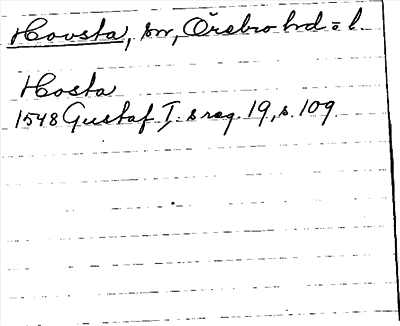 Hovsta, sn, Örebro hd = l.
Hosta
1548 Gustaf I. s reg. 19, s. 109.